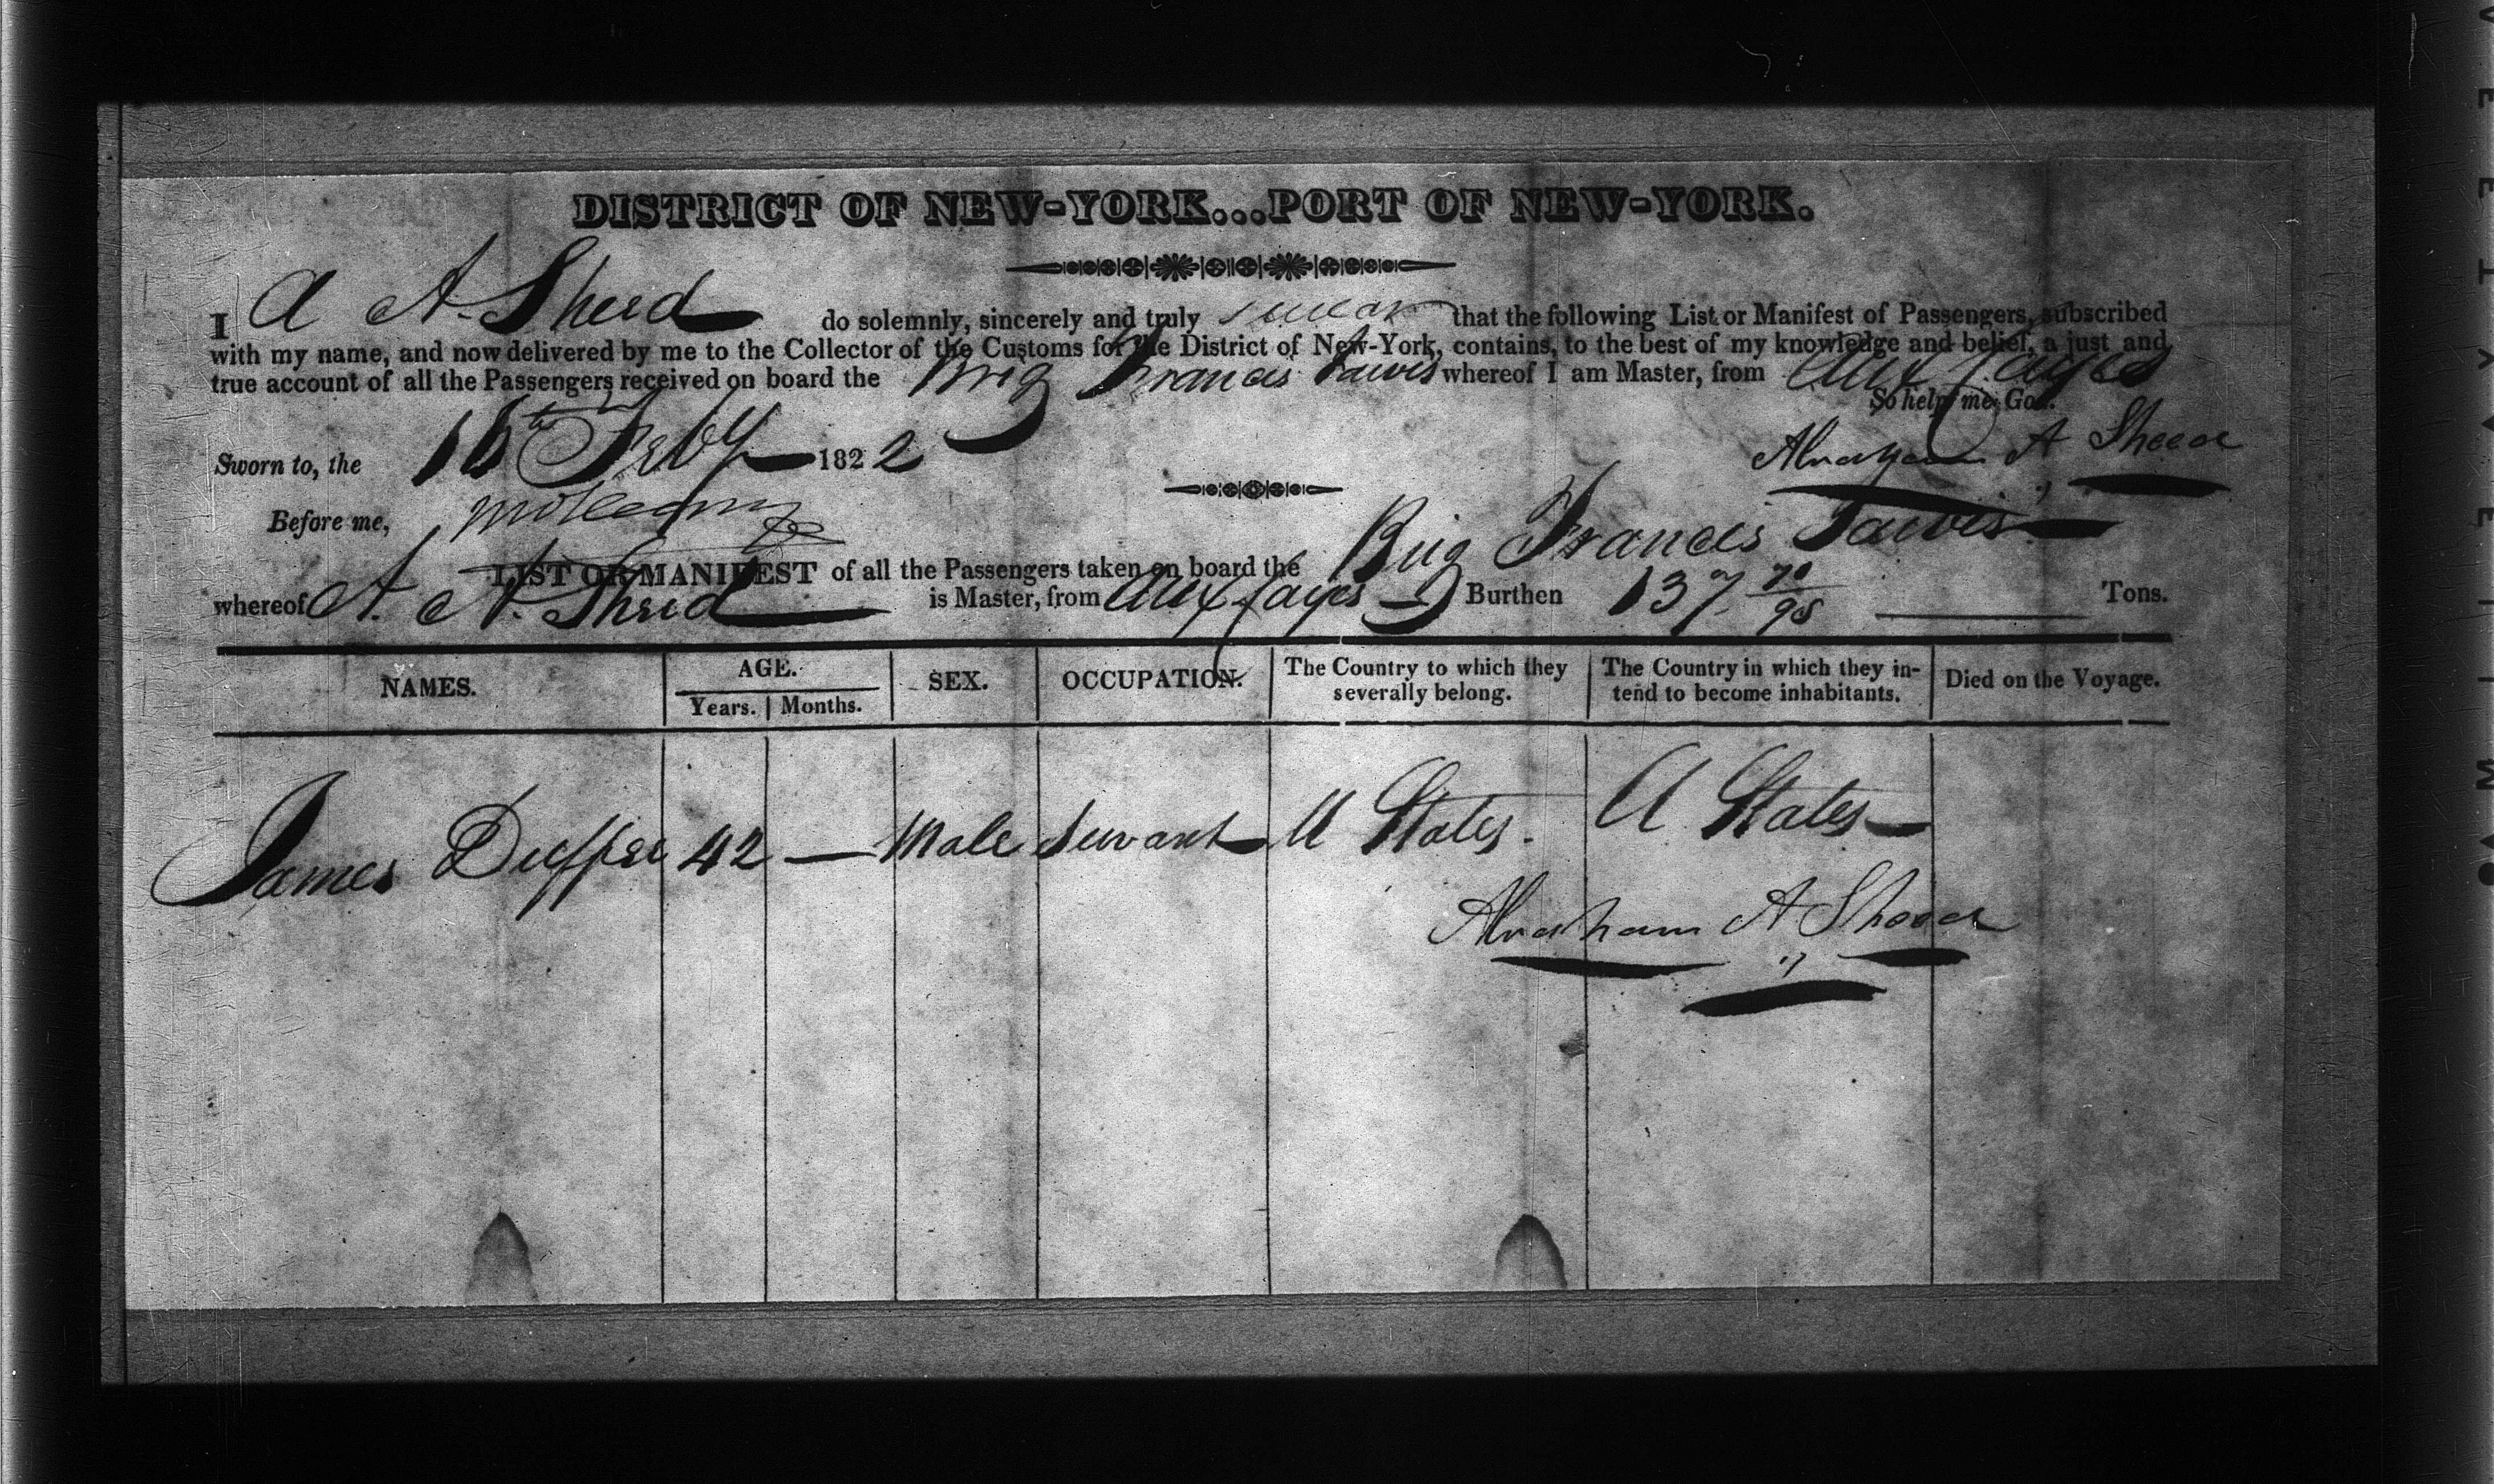 DISTRICT OF NEW-YORK...PORT OF NEW-YORK.
I A A. Sherd do solemnly, sincerely and truly swear that the following List or Manifest of Passengers, subscribed
with my name, and now delivered by me to the Collector of the Customs for the District of New-York, contains, to the best of my knowledge and belief, a just and
true account of all the Passengers received on board the Brig Francis Jarvis whereof I am Master, from Aux Cayes
So help me God.
Sworn to, the 16th Feby 1822
Abraham A Sheed
Before me,
LIST OR MANIFEST of all the Passengers taken on board the Brig Francis Jarvis
whereof A. A. Sherd is Master, from Aux Cayes Burthen 137 70/95 Tons.
NAMES. AGE. SEX. OCCUPATION. The Country to which they severally belong. The Country in which they intend to become inhabitants. Died on the Voyage.
Years. Months.
James Duffee 42 — Male Servant U States. U States
Abraham A Sheed